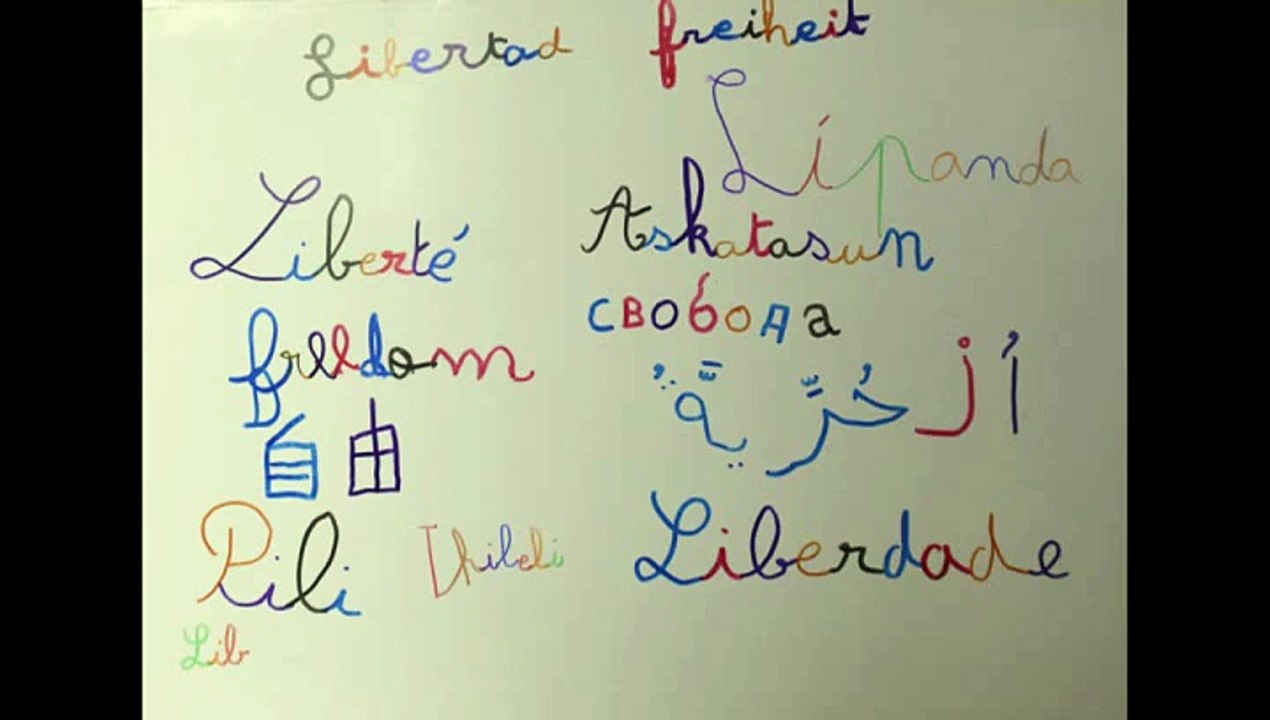 Libertad freiheit
Lípanda
Liberté Askatasun
свобода
freedom
اَلْحُرِّيَّةُ
自由
Pili Liberdade
Lib